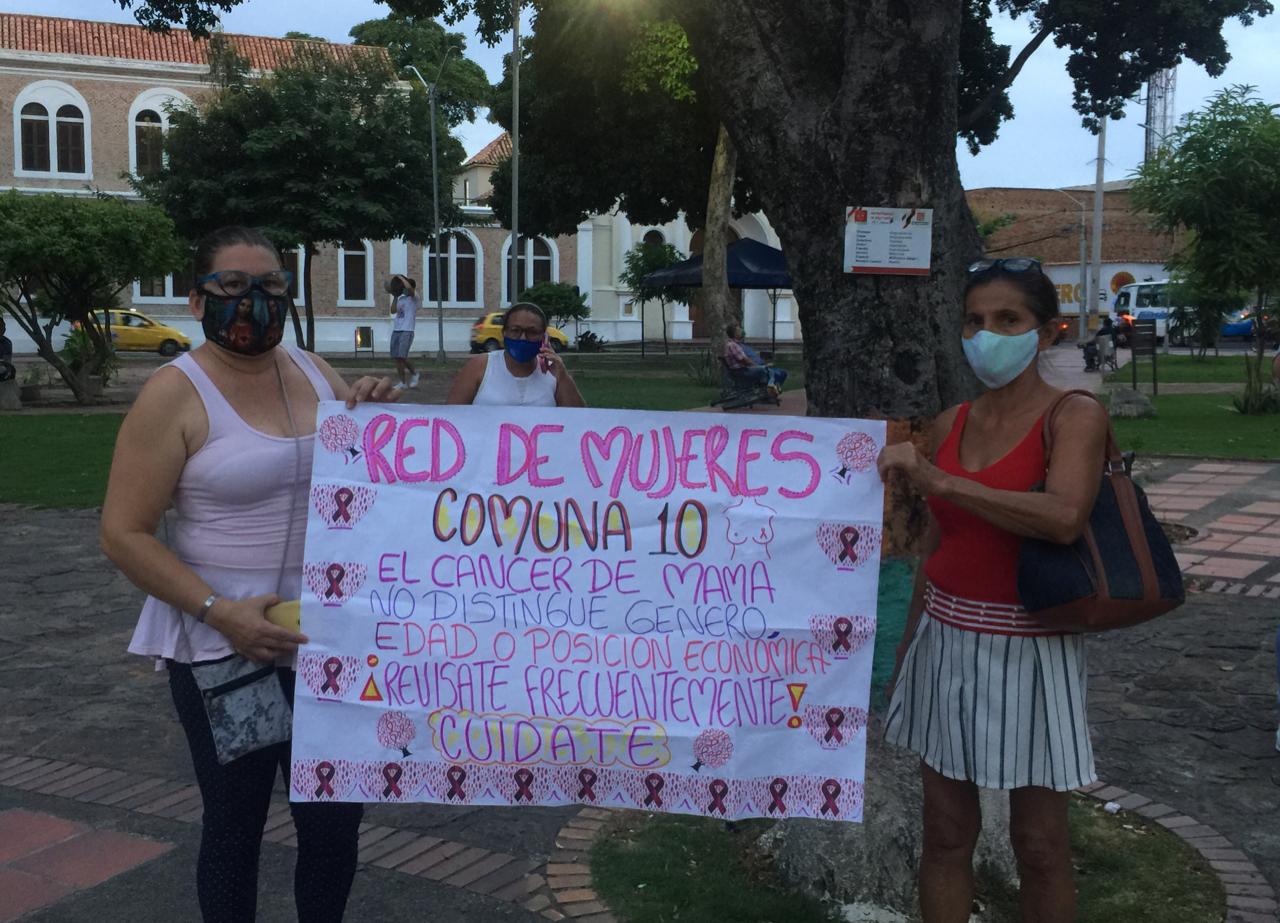 RED DE MUJERES
COMUNA 10
EL CANCER DE MAMA
NO DISTINGUE GENERO,
EDAD O POSICION ECONÓMICA
¡REVISATE FRECUENTEMENTE!
CUIDATE